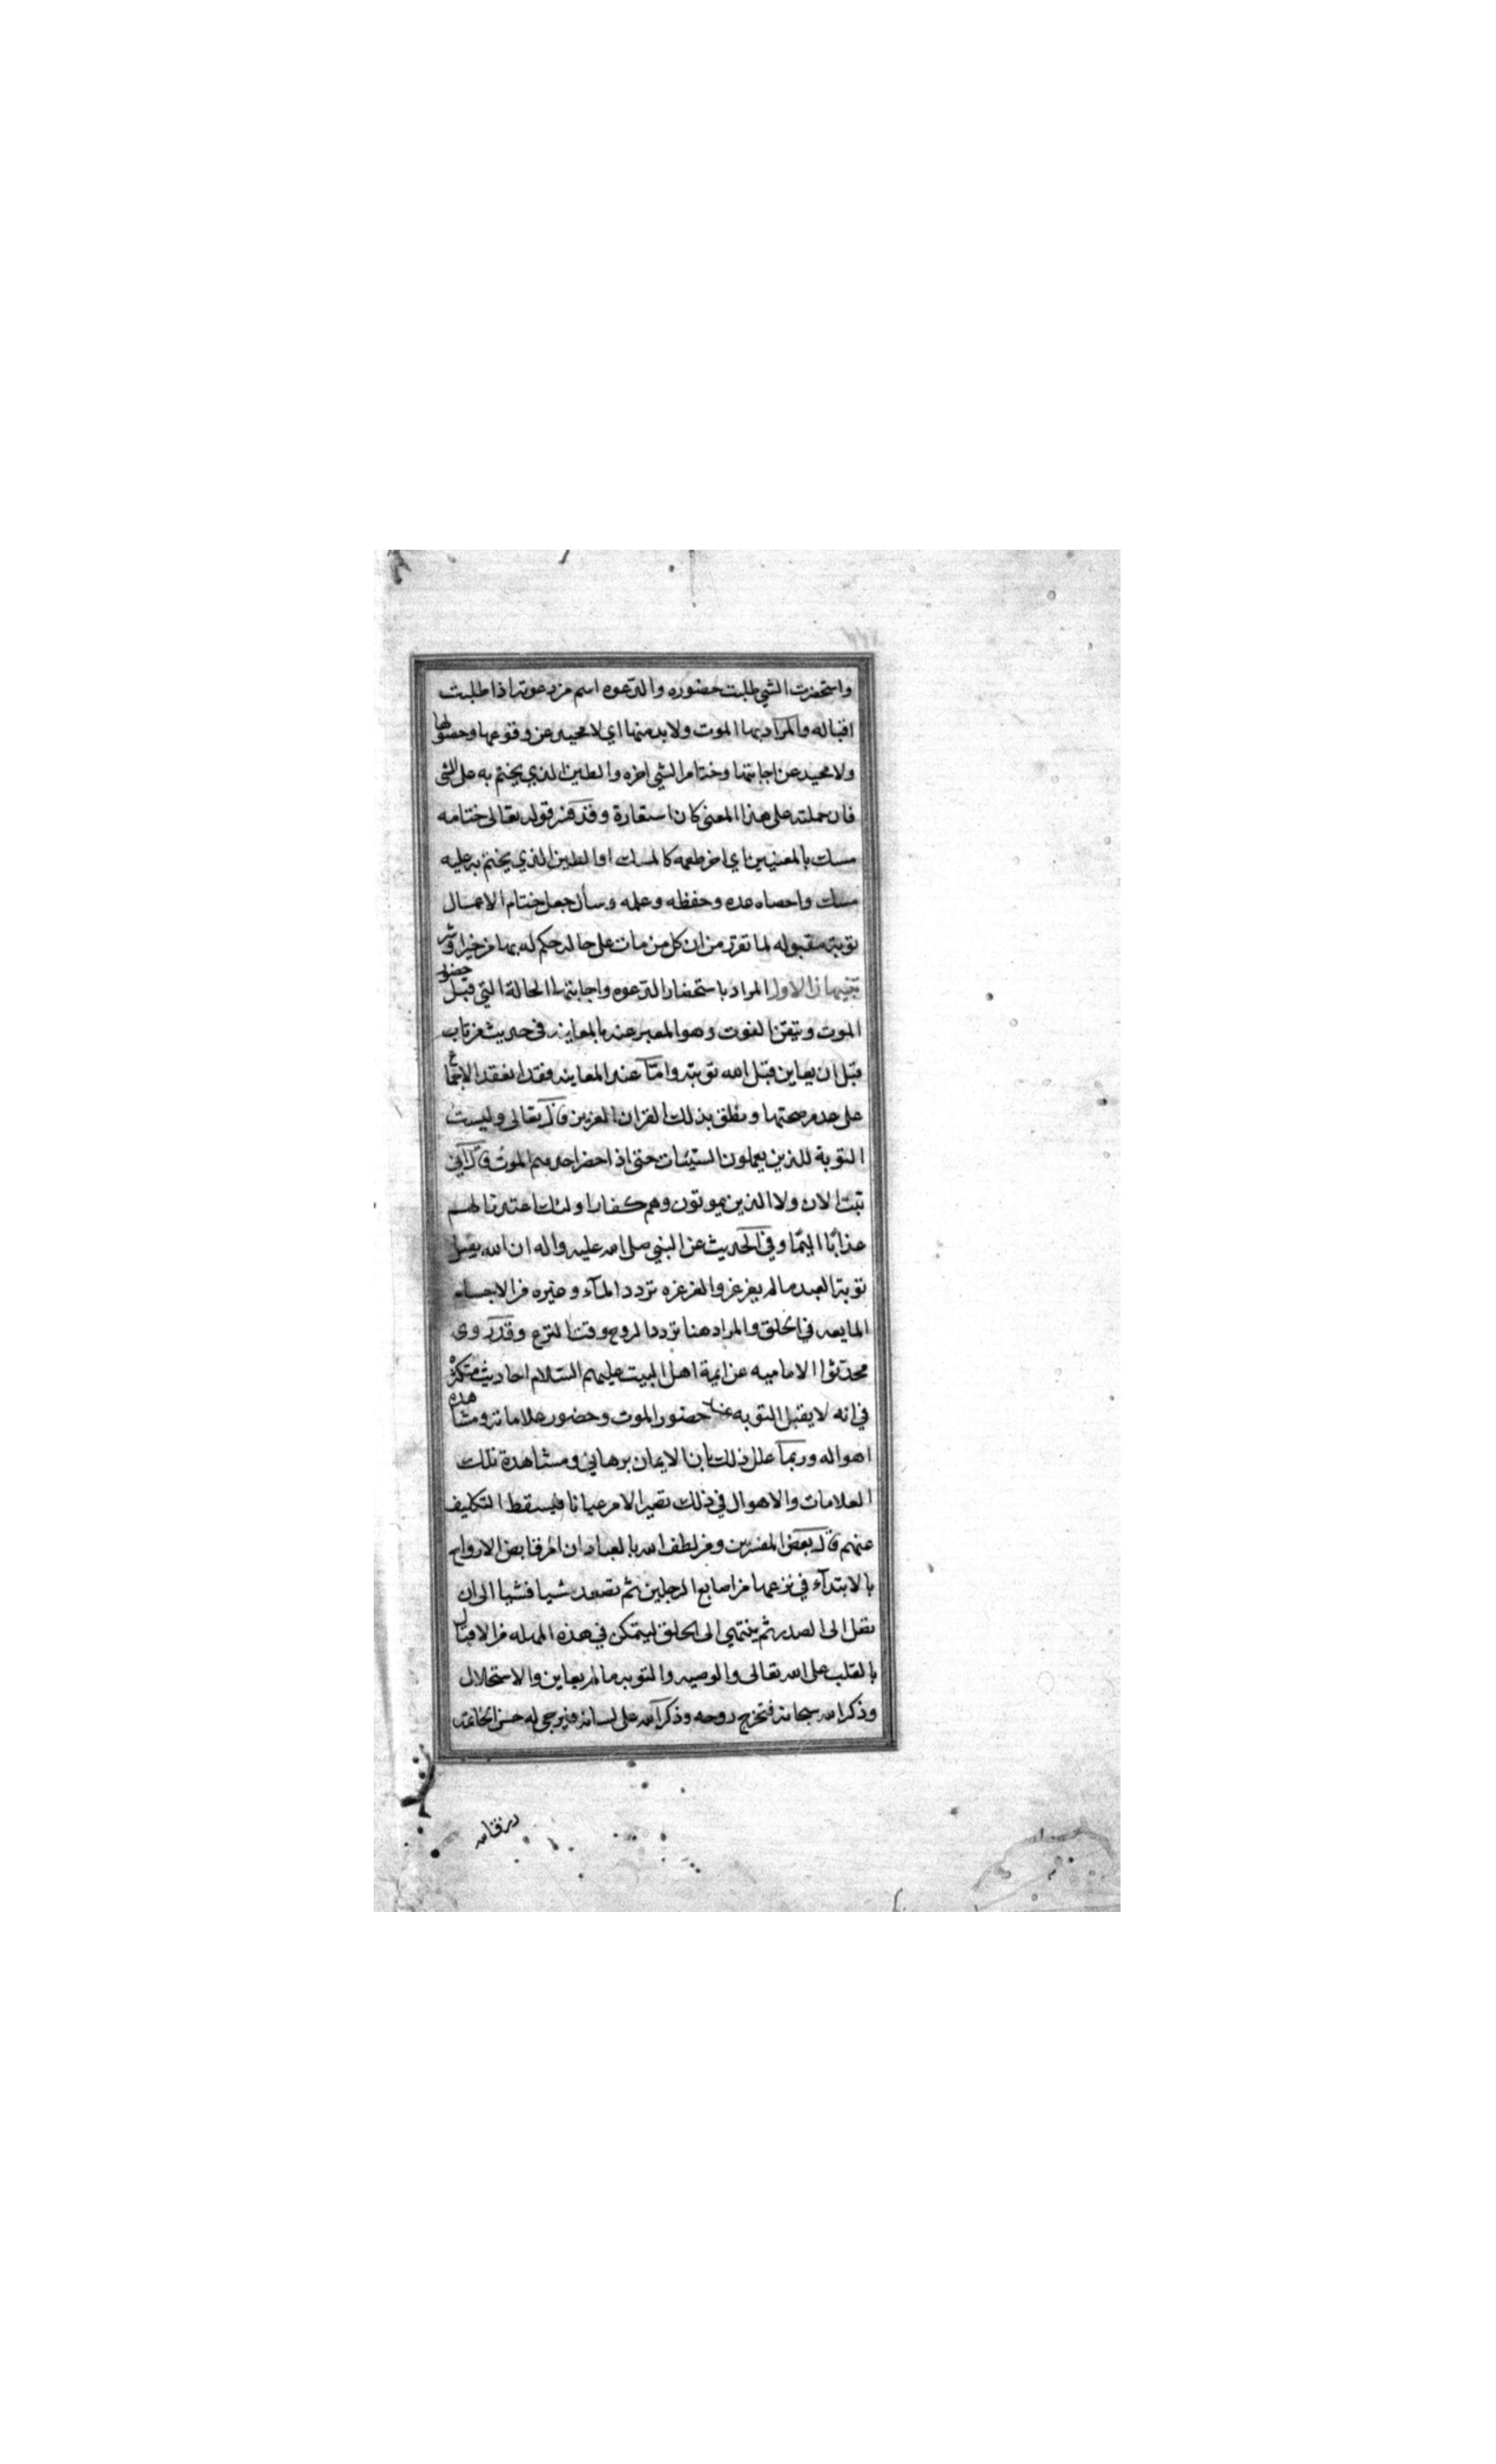 واستحضرت الشي طلبت حضوره والدعوه اسم من دعوته اذا طلبت
اقباله والمراد بها الموت ولابد منها اي لا محيد عن وقوعها وحصولها
ولا محيد عن اجابتها وختام الشي اخره والطين الذي يختم به على الشي
فان حملته على هذا المعنى كان استعارة وقد فسر قوله تعالى ختامه
مسك بالمعنيين اي اخر طعمه كالمسك او الطين الذي يختم به عليه
مسك واحصاه عده وحفظه وعلمه وسأل جعل ختام الاعمال
توبته مقبوله لما تقرر من ان كل من مات على حاله حكم له بها من خير او شر
تنبيهان الاول المراد باستحضار الدعوه واجابتها الحالة التي قبل حضور
الموت وتيقن الفوت وهو المعبر عنه بالمعاينه في حديث من تاب
قبل ان يعاين قبل الله توبته وامّا عند المعاينه فقد انعقد الاجماع
على عدم صحتها ونطق بذلك القران العزيز قال تعالى وليست
التوبة للذين يعملون السيئات حتى اذا حضر احدهم الموت قال اني
تبت الان ولا الذين يموتون وهم كفار اولئك اعتدنا لهم
عذابًا اليمًا وفي الحديث عن النبي صلى الله عليه واله ان الله يقبل
توبة العبد ما لم يغرغر والغرغره تردد المآء وغيره من الاجسام
المايعه في الحلق والمراد هنا تردد الروح وقت النزع وقد روى
محدثوا الاماميه عن ايمة اهل البيت عليهم السّلام احاديث متكثره
في انه لا يقبل التوبه عند حضور الموت وحضور علاماته ومشاهده
اهواله وربما علل ذلك بان الايمان برهاني ومشاهدة تلك
العلامات والاهوال في ذلك تصير الامر عيانا فيسقط التكليف
عنهم قال بعض المفسرين ومن لطف الله بالعباد ان امر قابض الارواح
بالابتدآء في نزعها من اصابع الرجلين ثم تصعد شيا فشيا الى ان
تصل الى الصدر ثم ينتهي الى الحلق ليتمكن في هذه المهله من الاقبال
بالقلب على الله تعالى والوصيه والتوبه ما لم يعاين والاستحلال
وذكر الله سبحانه فتخرج روحه وذكر الله على لسانه فيرجى له حسن الخاتمه